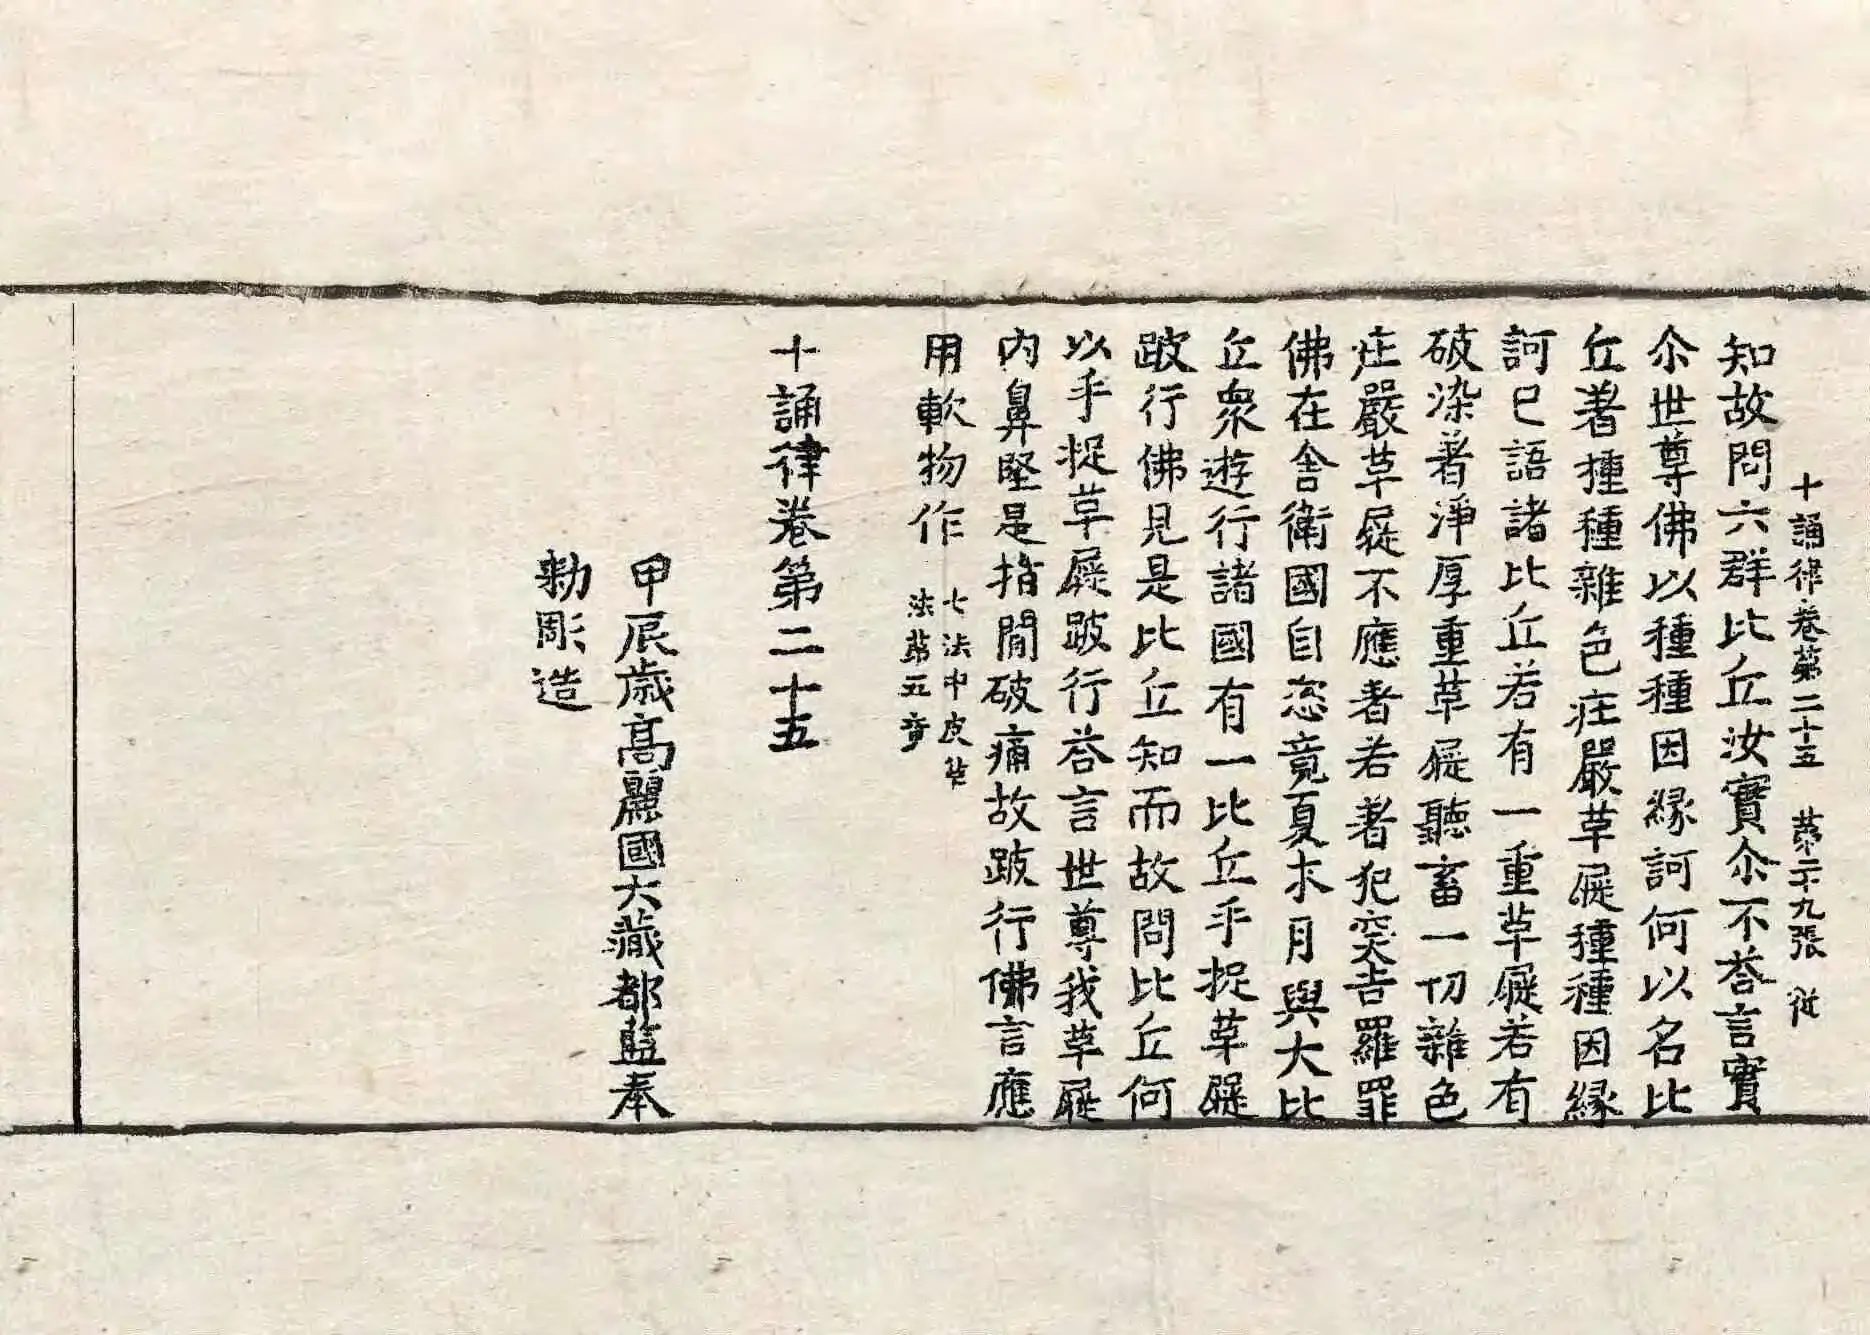 十誦律卷第二十五 苐二十九張 従
知故問六群比丘汝實尒不荅言實
尒世尊佛以種種因緣訶何以名比
丘著種種雜色庄嚴草屣種種因緣
訶已語諸比丘若有一重草屣若有
破染著淨厚重草屣聽畜一切雜色
庄嚴草屣不應著若著犯突吉羅罪
佛在舍衛國自恣竟夏末月與大比
丘衆遊行諸國有一比丘手捉草屣
跛行佛見是比丘知而故問比丘何
以手捉草屣跛行荅言世尊我草屣
內鼻堅是指閒破痛故跛行佛言應
用軟物作 七法中皮革
法苐五竟
十誦律卷第二十五
甲辰歲高麗國大藏都監奉
勅彫造